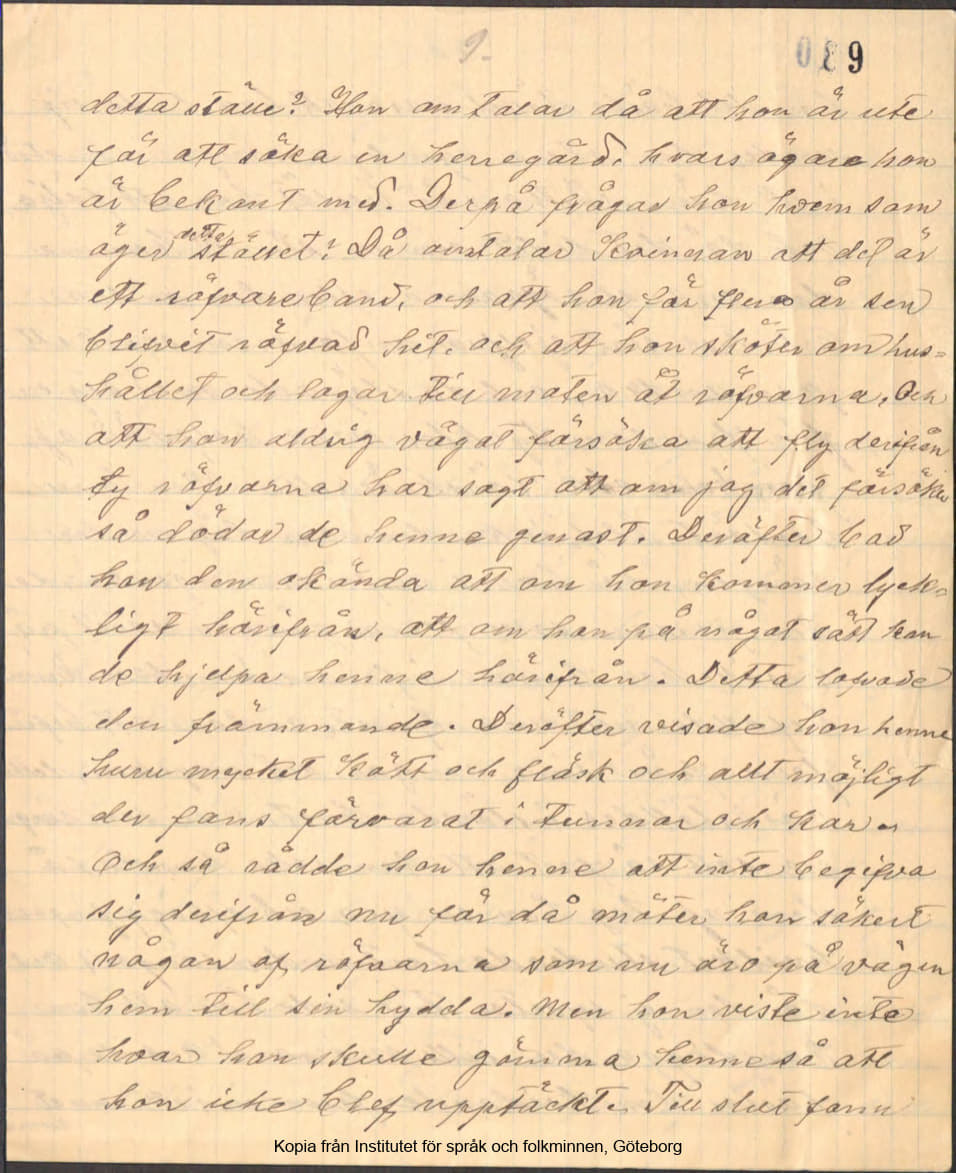 9.
089
detta ställe? Hon omtalar då att hon är ute
för att söka en herregård, hvars ägare hon
är bekant med. Derpå frågar hon hvem som
äger detta stället? Då omtalar kvinnan att det är
ett röfvareband, och att hon för flera år sen
blifvit röfvad hit. och att hon sköter om hus=
hållet och lagar till maten åt röfvarna. Och
att hon aldrig vågat försöka att fly derifrån
ty röfvarna har sagt att om jag det försöker
så dödar de henne genast. Deräfter bad
hon den okända att om hon kommer lyck=
ligt härifrån, att om hon på något sätt kun
de hjelpa henne härifrån. Detta lofvade
den främmande. Deräfter visade hon henne
huru mycket kött och fläsk och allt möjligt
der fans förvarat i tunnor och kar.
Och så rådde hon henne att inte begifva
sig derifrån nu för då möter hon säkert
någon af röfvarna som nu äro på vägen
hem till sin hydda. Men hon viste inte
hvar hon skulle gömma henne så att
hon icke blef upptäckt. Till slut fann
Kopia från Institutet för språk och folkminnen, Göteborg